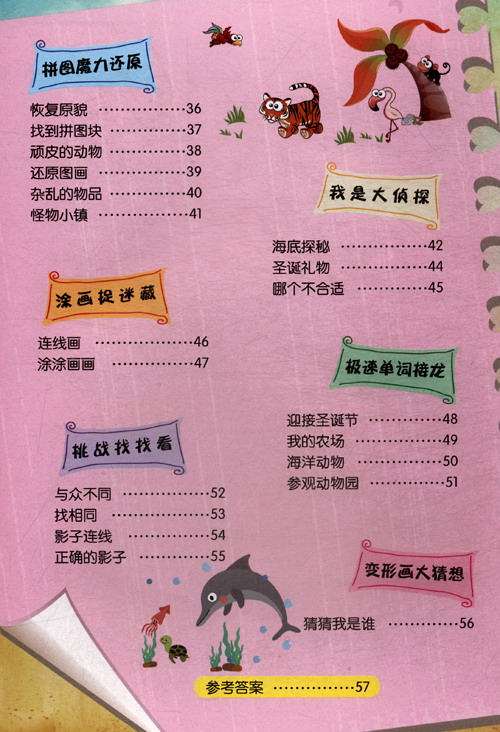 拼图魔力还原
恢复原貌 ················ 36
找到拼图块 ·············· 37
顽皮的动物 ·············· 38
还原图画 ················ 39
杂乱的物品 ·············· 40
怪物小镇 ················ 41
我是大侦探
海底探秘 ················ 42
圣诞礼物 ················ 44
哪个不合适 ·············· 45
涂画捉迷藏
连线画 ················ 46
涂涂画画 ················ 47
极速单词接龙
迎接圣诞节 ·············· 48
我的农场 ················ 49
海洋动物 ················ 50
参观动物园 ·············· 51
挑战找找看
与众不同 ················ 52
找相同 ················ 53
影子连线 ················ 54
正确的影子 ·············· 55
变形画大猜想
猜猜我是谁 ·············· 56
参考答案 ················ 57